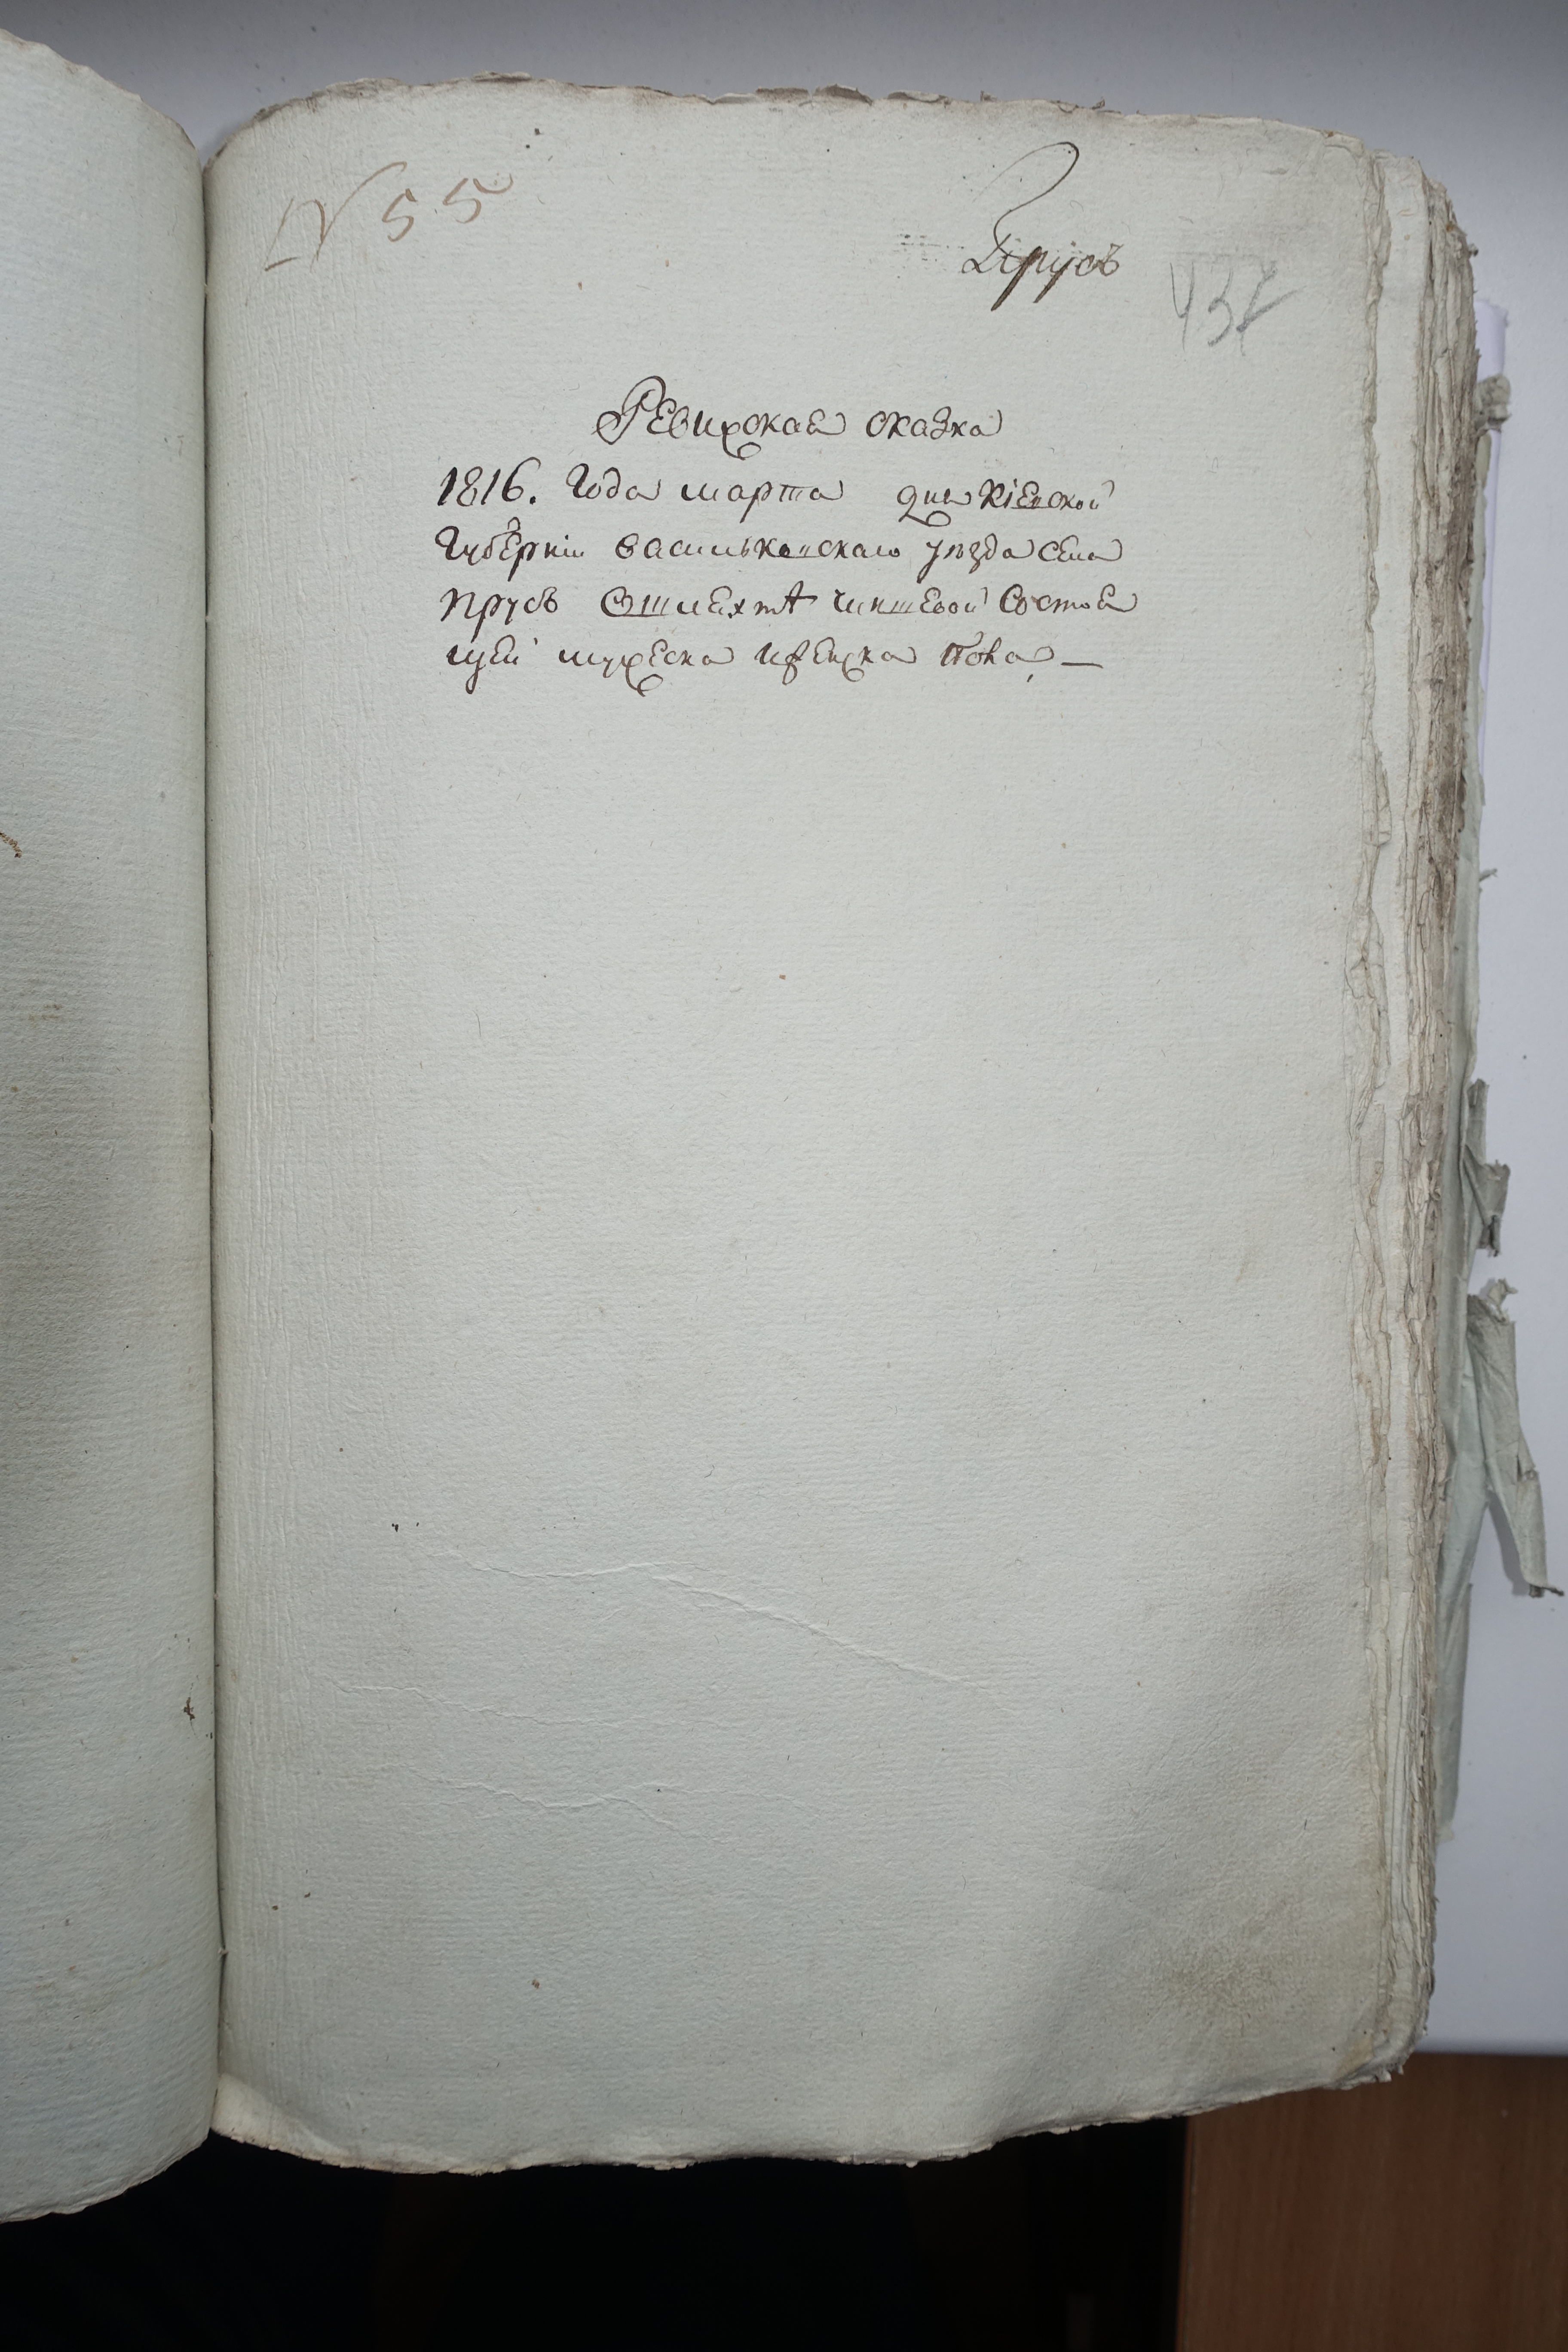 № 55
Прусъ
437
Ревижская сказка
1816. Года марта дня Кіевской
Губерніи Васильковскаго уезда села
Прусъ О шляхтѣ чиншевой Состоя
щей мужеска и женска пола —